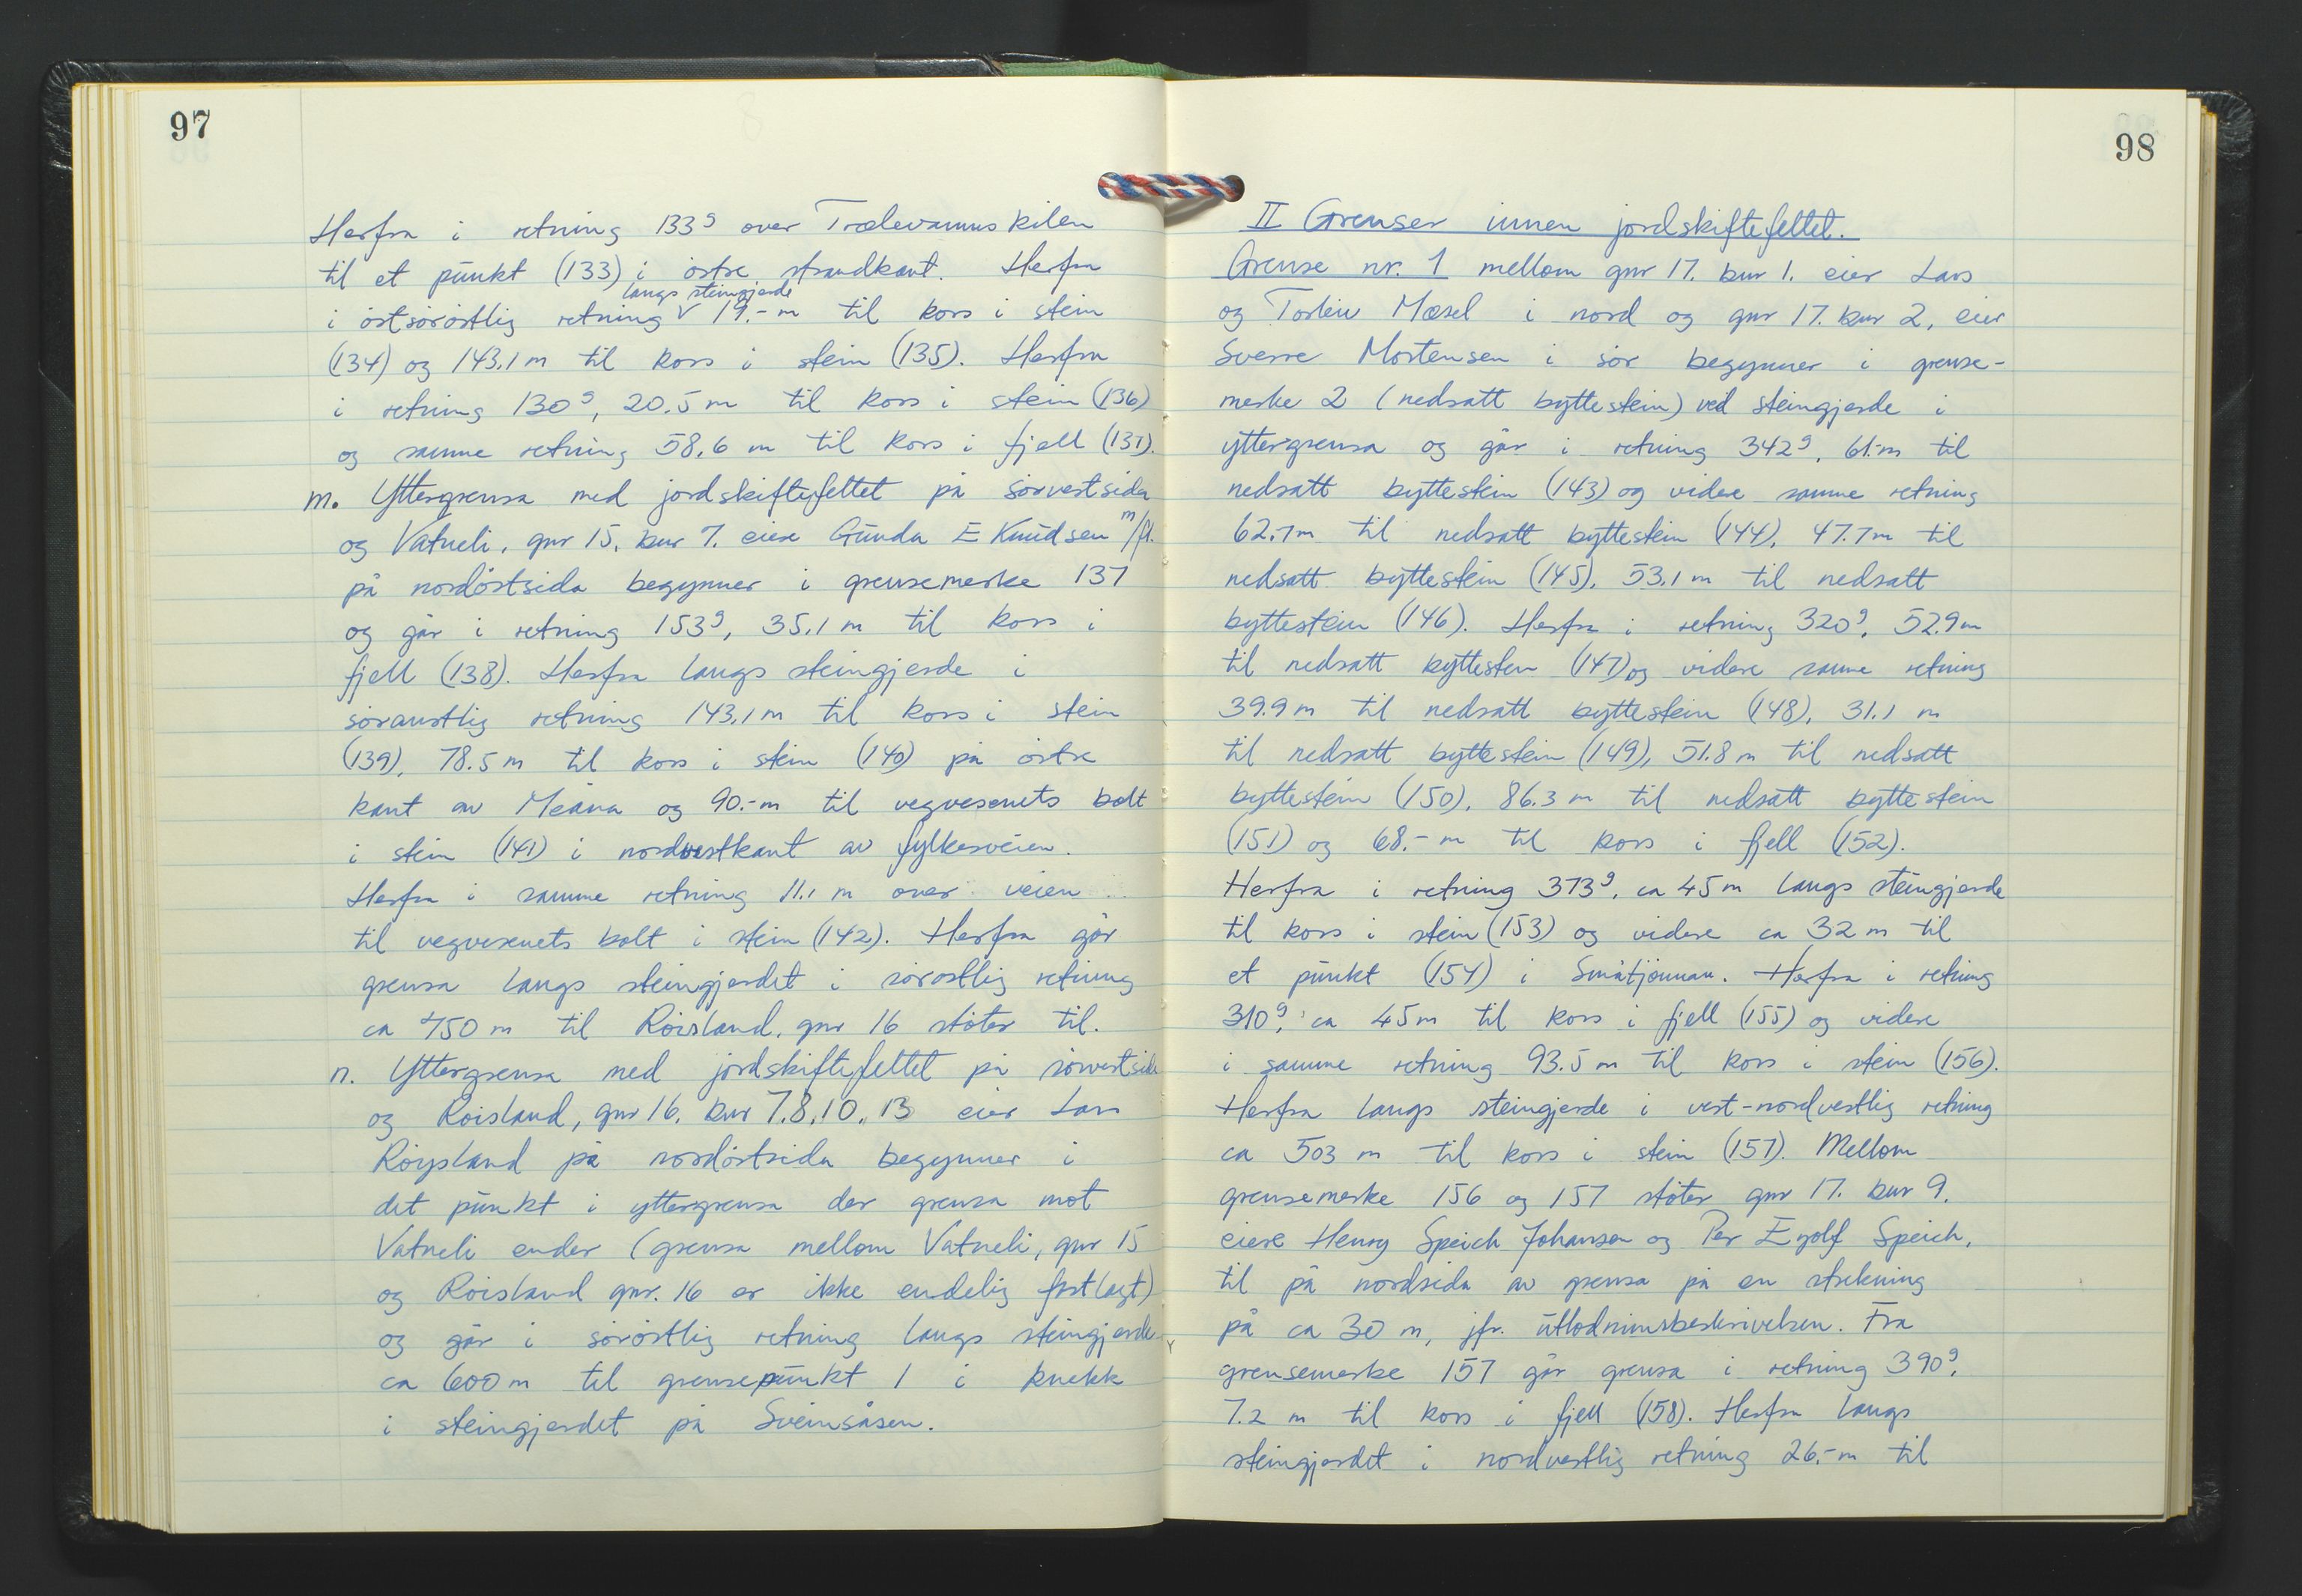 97
Herfra i retning 133g over Trælevannskilen
til et punkt (133) i østre strandkant. Herfra
langs steingjerde
i østsørøstlig retning V 19.- m til kors i stein
(134) og 143,1 m til kors i stein (135). Herfra
i retning 130g, 20.5 m til kors i stein (136)
og samme retning 58,6 m til kors i fjell (137).
m. Yttergrensa med jordskiftefeltet på sørvestsida
og Vatneli, gnr 15, bnr 7. eiere Gunda E Knudsen m/fl.
på nordøstsida begynner i grensemerke 137
og går i retning 153g, 35,1 m til kors i
fjell (138). Herfra langs steingjerde i
søraustlig retning 143,1 m til kors i stein
(139), 78.5 m til kors i stein (140) på østre
kant av Meåna og 90.- m til vegvesenets bolt
i stein (141) i nordvestkant av fylkesveien.
Herfra i samme retning 11,1 m over veien
til vegvesenets bolt i stein (142). Herfra går
grensa langs steingjerdet i sørøstlig retning
ca 750 m til Røisland, gnr 16 støter til.
n. Yttergrensa med jordskiftefeltet på sørvestsida
og Røisland, gnr 16, bnr 7.8,10,13 eier Lars
Røysland på nordøstsida begynner i
det punkt i yttergrensa der grensa mot
Vatneli ender (grensa mellom Vatneli, gnr 15
og Røisland gnr. 16 er ikke endelig fastlagt)
og går i sørøstlig retning langs steingjerde
ca 600 m til grensepunkt 1 i knekk
i steingjerdet på Sveinsåsen.
98
II Grenser innen jordskiftefeltet.
Grense nr. 1 mellom gnr 17. bnr 1. eier Lars
og Torleiv Mæsel i nord og gnr 17. bnr 2, eier
Sverre Mortensen i sør begynner i grense-
merke 2 (nedsatt byttestein) ved steingjerde i
yttergrensa og går i retning 342g, 61.- m til
nedsatt byttestein (143) og videre samme retning
62.7 m til nedsatt byttestein (144), 47.7 m til
nedsatt byttestein (145), 53,1 m til nedsatt
byttestein (146). Herfra i retning 320g, 52.9 m
til nedsatt byttesten (147) og videre samme retning
39.9 m til nedsatt byttestein (148), 31.1 m
til nedsatt byttestein (149), 51.8 m til nedsatt
byttestein (150), 86.3 m til nedsatt byttestein
(151) og 68.- m til kors i fjell (152).
Herfra i retning 373g, ca 45 m langs steingjerde
til kors i stein (153) og videre ca 32 m til
et punkt (154) i Småtjønnan. Herfra i retning
310g, ca 45 m til kors i fjell (155) og videre
i samme retning 93.5 m til kors i stein (156).
Herfra langs steingjerde i vest-nordvestlig retning
ca 503 m til kors i stein (157). Mellom
grensemerke 156 og 157 støter gnr 17. bnr 9.
eiere Henry Speich Johansen og Per Eyolf Speich,
til på nordsida av grensa på en strekning
på ca 30 m, jfr. utlodninsbeskrivelsen. Fra
grensemerke 157 går grensa i retning 390g,
7.2 m til kors i fjell (158). Herfra langs
steingjerdet i nordvestlig retning 26.- m til